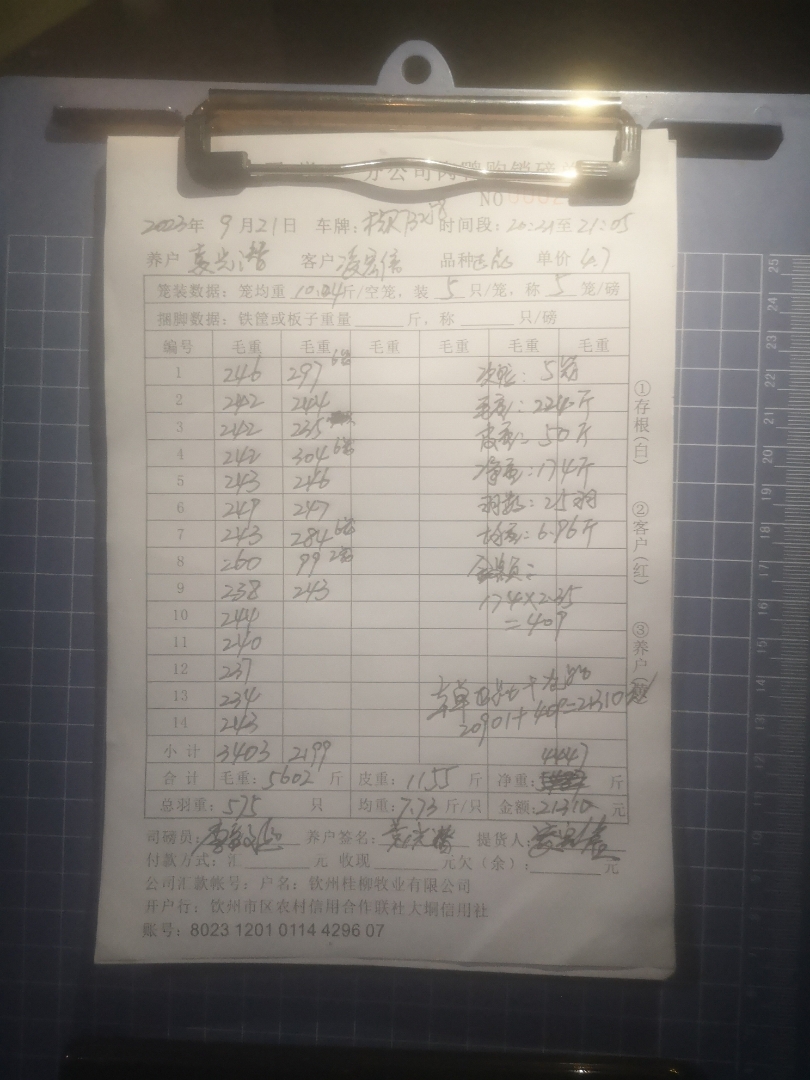 分公司肉鸭购销磅
NO
2023年 9月21日 车牌: 时间段: 20:21至21:05
养户 客户 凌宏信 品种 单价 4.7
笼装数据: 笼均重 10.04斤/空笼, 装 5 只/笼, 称 5 笼/磅
捆脚数据: 铁筐或板子重量 斤, 称 只/磅
编号 毛重 毛重 毛重 毛重 毛重 毛重
1 246 297 6笼 次鸭: 5笼
2 242 244 毛重: 224斤
3 242 235 皮重: 50斤
4 242 304 6笼 净重: 174斤
5 243 246
6 249 247 羽数: 25羽
7 243 284 6笼 均重: 6.96斤
8 260 99 2笼 金额:
9 238 243 174×2.35
10 244 =409
11 240
12 237
13 234
14 243 20901+409=21310
小计 3403 2199 4447
合计 毛重: 5602 斤 皮重: 1155 斤 净重: 斤
总羽重: 575 只 均重: 7.73 斤/只 金额: 21310 元
司磅员: 养户签名: 提货人:
付款方式: 汇 元 收现 元欠(余): 元
公司汇款帐号: 户名: 钦州桂柳牧业有限公司
开户行: 钦州市区农村信用合作联社大垌信用社
账号: 8023 1201 0114 4296 07
①存根(白)
②客户(红)
③养户